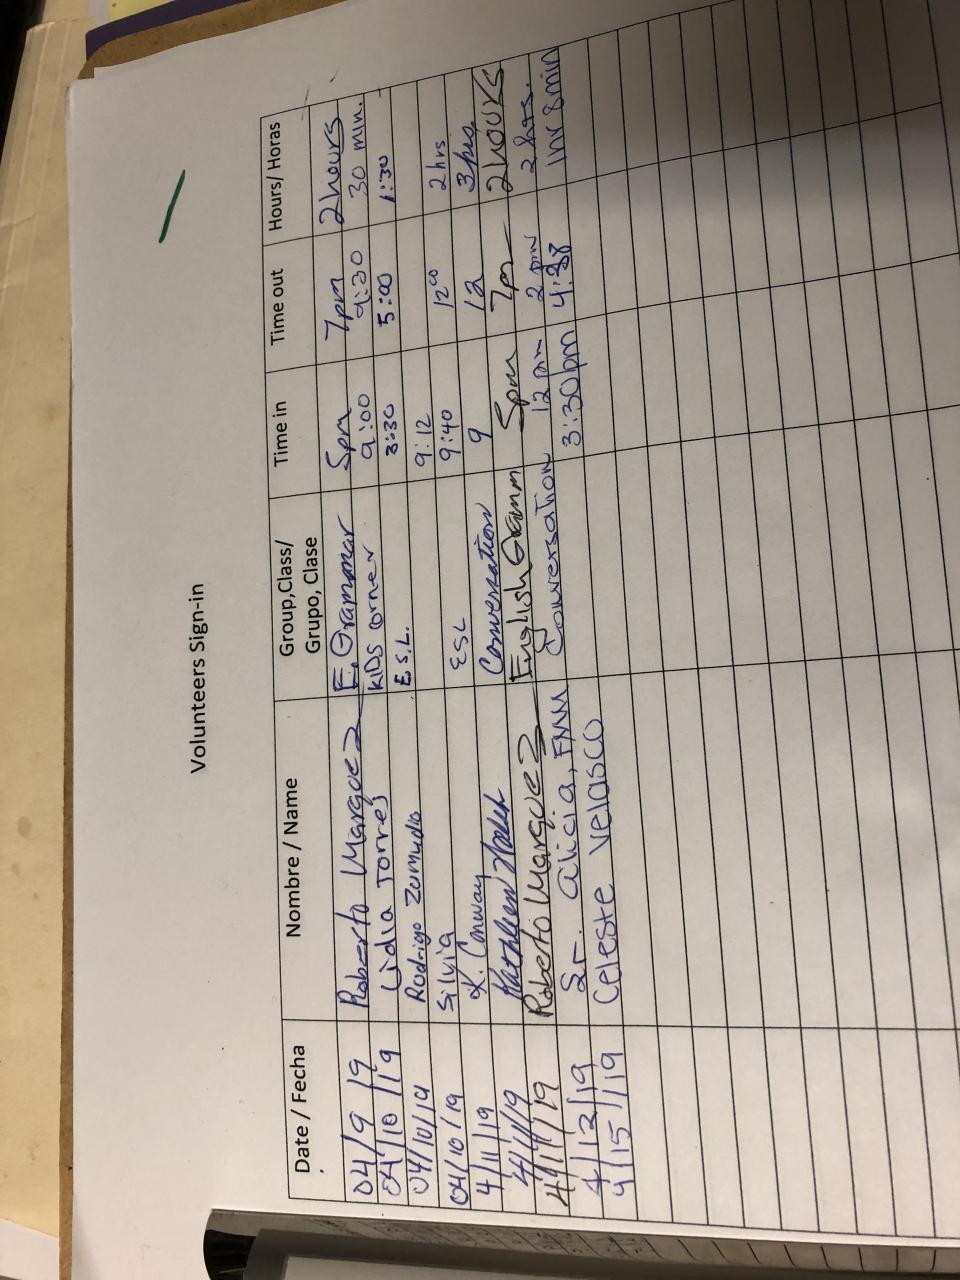 Volunteers Sign-in
Date / Fecha Nombre / Name Group,Class/ Grupo, Clase Time in Time out Hours/ Horas
04/9/19 Roberto Marquez E, Grammar 5pm 7pm 2hours
04/10/19 Lidia Torres KiDS corner 9:00 9:30 30 min.
04/10/19 Rodrigo Zumudio E.S.L. 3:30 5:00 1:30
04/10/19 Silvia 9:12
4/11/19 K. Conway ESL 9:40 12⁰⁰ 2hrs
4/11/19 Kathleen Conversation 9 12 3hrs
4/11/19 Roberto Marquez English Gramm 5pm 7pm 2hours
4/12/19 Sr. Alicia, FMM Conversation 12pm 2pm 2hrs.
4/15/19 Celeste Velasco 3:30pm 1hr 8min